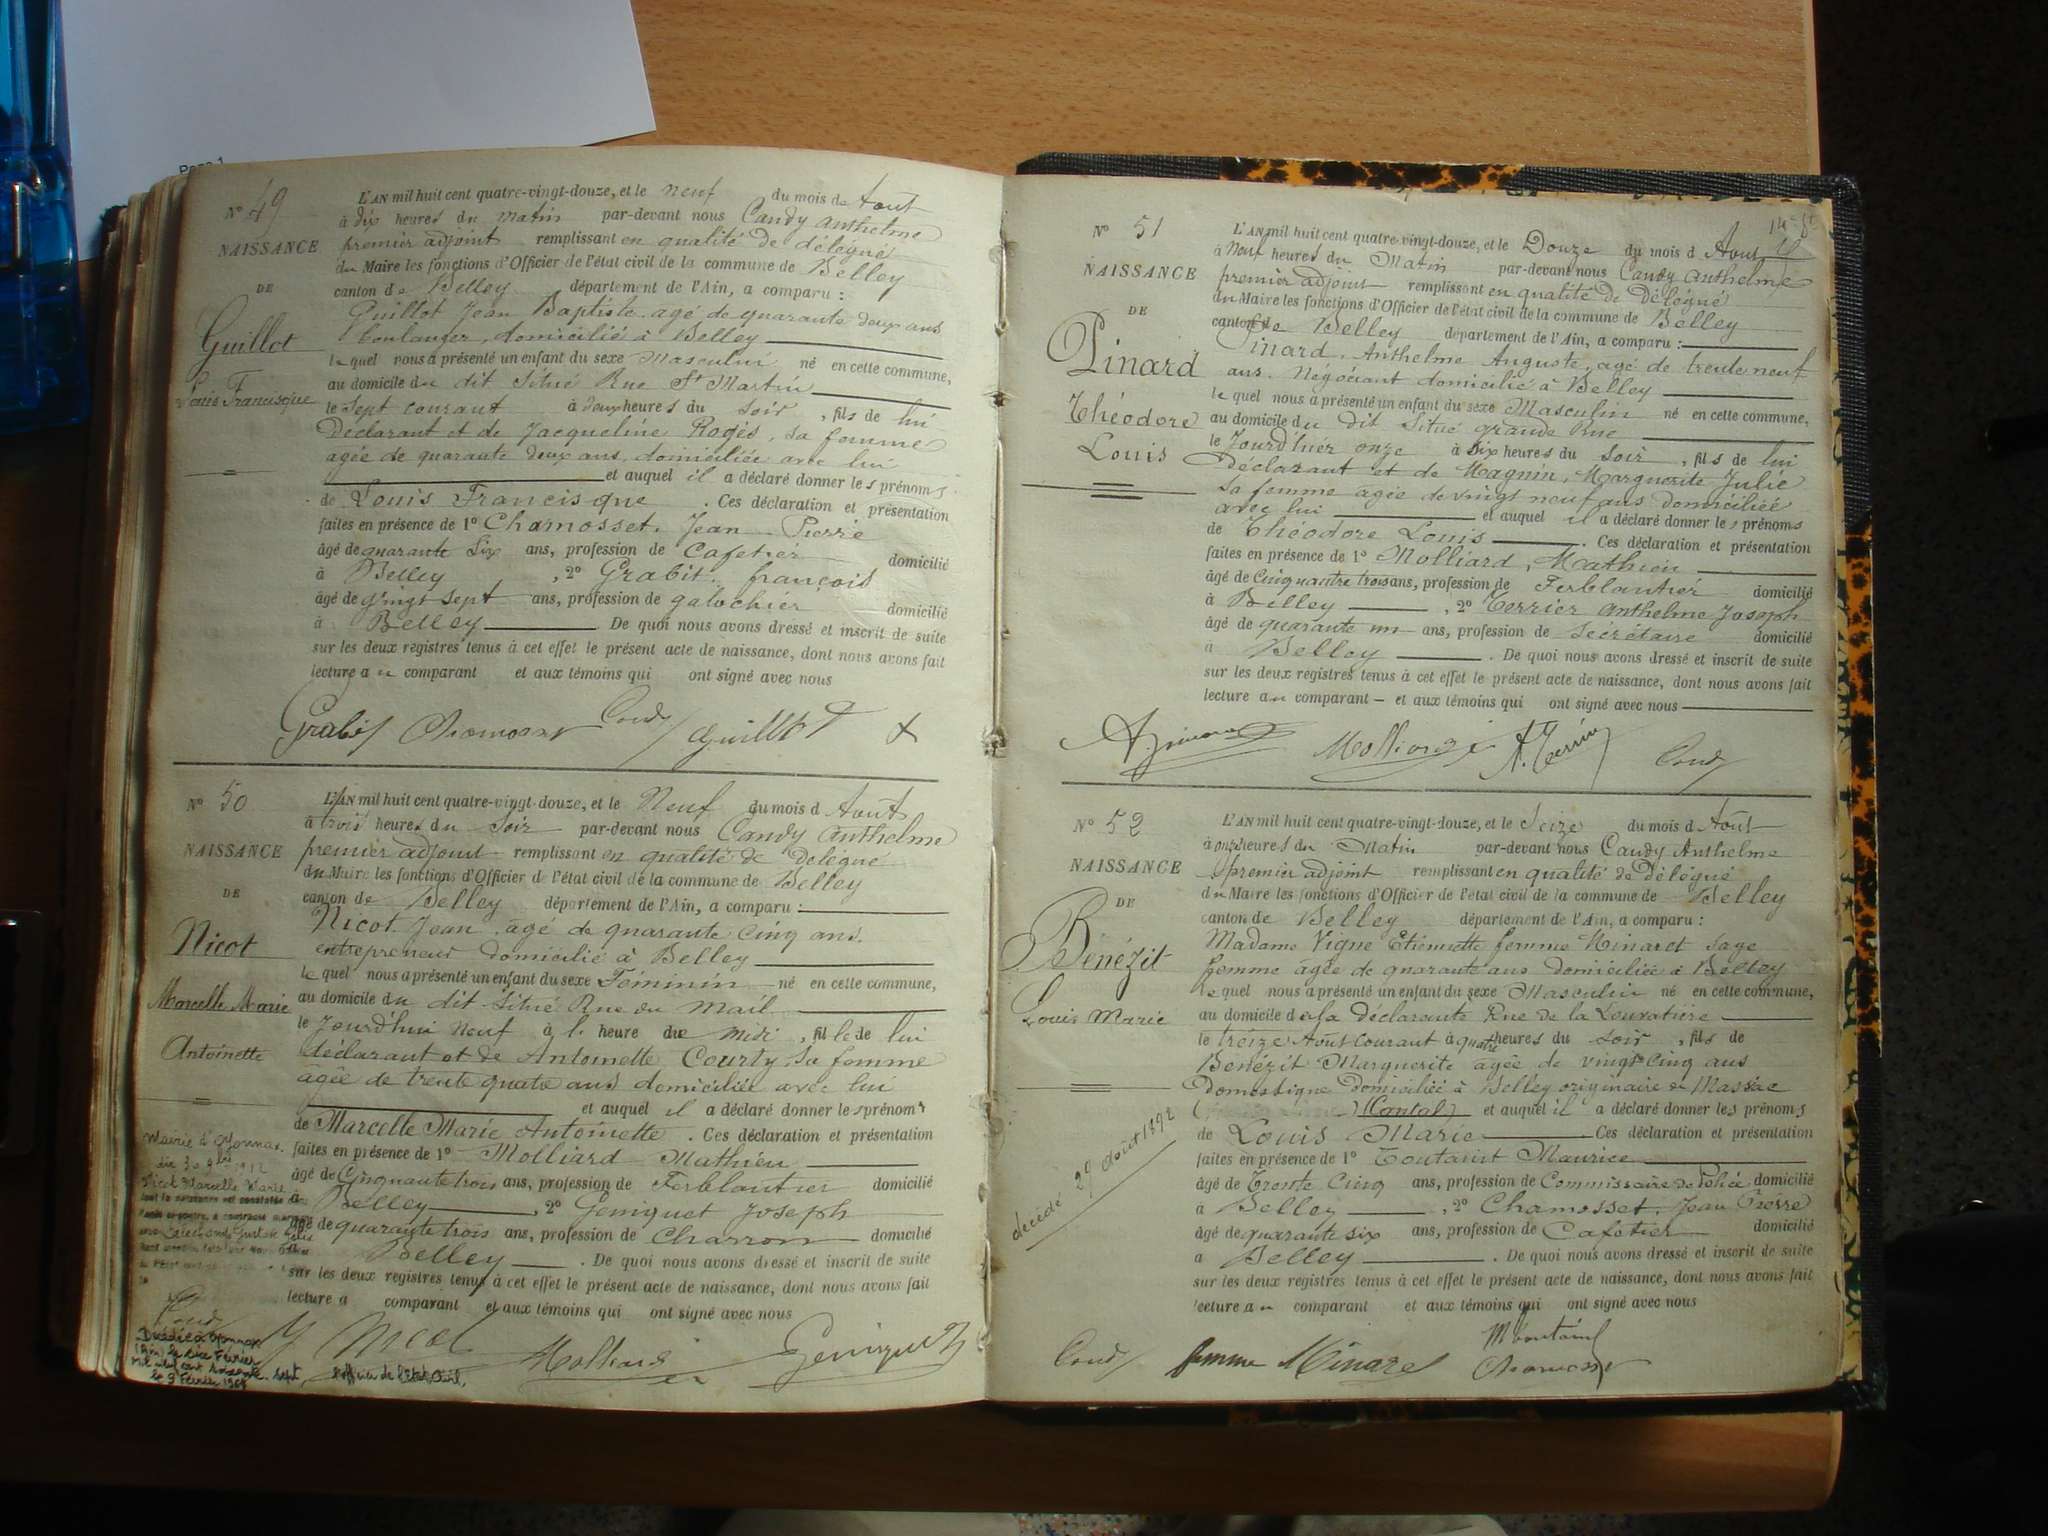 Page 1
N° 49
NAISSANCE
DE
Guillot
Louis Francisque
L'AN mil huit cent quatre-vingt-douze, et le neuf du mois de Aout
à dix heures du matin par-devant nous Candy Anthelme
premier adjoint remplissant en qualité de délégué
du Maire les fonctions d'Officier de l'état civil de la commune de Belley
canton de Belley département de l'Ain, a comparu :
Guillot Jean Baptiste agé de quarante deux ans
boulanger, domicilié à Belley
le quel nous a présenté un enfant du sexe Masculin né en cette commune,
au domicile du dit Situé Rue St Martin
le sept courant à deux heures du soir, fils de lui
Déclarant et de Jacqueline Rogès, sa femme
agée de quarante deux ans, domiciliée avec lui
et auquel il a déclaré donner les prénoms
de Louis Francisque. Ces déclaration et présentation
faites en présence de 1° Chamosset, Jean Pierre
âgé de quarante Six ans, profession de Cafetier domicilié
à Belley, 2° Grabit, françois
âgé de vingt sept ans, profession de galochier domicilié
à Belley De quoi nous avons dressé et inscrit de suite
sur les deux registres tenus à cet effet le présent acte de naissance, dont nous avons fait
lecture au comparant et aux témoins qui ont signé avec nous
Grabit Chamosset Candy Guillot
N° 50
NAISSANCE
DE
Nicot
Marcelle Marie
Antoinette
L'AN mil huit cent quatre-vingt-douze, et le Neuf du mois d Aout
à trois heures du Soir par-devant nous Candy Anthelme
premier adjoint remplissant en qualité de Délégué
du Maire les fonctions d'Officier de l'état civil de la commune de Belley
canton de Belley département de l'Ain, a comparu :
Nicot Jean, âgé de quarante cinq ans.
entrepreneur domicilié à Belley
le quel nous a présenté un enfant du sexe Féminin né en cette commune,
au domicile du dit Situé Rue du Mail
le Jourd'hui neuf à 1. heure du midi, fille de lui
déclarant et de Antoinette Courty, Sa femme
âgée de trente quatre ans domiciliée avec lui
et auquel il a déclaré donner les prénoms
de Marcelle Marie Antoinette. Ces déclaration et présentation
faites en présence de 1° Molliard Mathieu
âgé de Cinquante trois ans, profession de Ferblantier domicilié
à Belley, 2° Geniquet Joseph
âgé de quarante trois ans, profession de Charron domicilié
Belley. De quoi nous avons dressé et inscrit de suite
sur les deux registres tenus à cet effet le présent acte de naissance, dont nous avons fait
lecture a comparant et aux témoins qui ont signé avec nous
Mairie d'Oyonnax
1912
Nicot Marcelle Marie
J Nicot Molliard Geniquet
Décédée à Oyonnax
(Ain) le Février
Mil neuf cent soixante sept,
le 9 Février 1967 l'officier de l'état civil,
N° 51
NAISSANCE
DE
Pinard
Théodore
Louis
L'AN mil huit cent quatre-vingt-douze, et le Douze du mois d Aout
à Neuf heures du Matin par-devant nous Candy Anthelme
premier adjoint remplissant en qualité de délégué
du Maire les fonctions d'Officier de l'état civil de la commune de Belley
canton de Belley département de l'Ain, a comparu :
Pinard, Anthelme Auguste, agé de trente neuf
ans. Négociant domicilié à Belley
le quel nous a présenté un enfant du sexe Masculin né en cette commune,
au domicile du dit Situé grande Rue
le Jourd'hier onze à six heures du soir, fils de lui
Déclarant et de Magnin, Marguerite Julie
sa femme âgée de vingt neuf ans domiciliée
avec lui et auquel il a déclaré donner les prénoms
de Théodore Louis. Ces déclaration et présentation
faites en présence de 1° Molliard, Mathieu
âgé de Cinquante trois ans, profession de Ferblantier domicilié
à Belley, 2° Terrier Anthelme Joseph
âgé de quarante un ans, profession de Secrétaire domicilié
à Belley. De quoi nous avons dressé et inscrit de suite
sur les deux registres tenus à cet effet le présent acte de naissance, dont nous avons fait
lecture au comparant – et aux témoins qui ont signé avec nous
A. Pinard Molliard A. Terrier Candy
N° 52
NAISSANCE
DE
Bénézit
Louis Marie
décédé 29 Août 1892
L'AN mil huit cent quatre-vingt-douze, et le Seize du mois d Août
à onze heures du Matin par-devant nous Candy Anthelme
premier adjoint remplissant en qualité de délégué
du Maire les fonctions d'Officier de l'état civil de la commune de Belley
canton de Belley département de l'Ain, a comparu :
Madame Vigne Etiennette femme Minaret sage
femme âgée de quarante ans domiciliée à Belley
le quel nous a présenté un enfant du sexe Masculin né en cette commune,
au domicile de la déclarante Rue de la Louvatière
le treize Aout courant à quatre heures du soir, fils de
Benézit Marguerite âgée de vingt cinq ans
Domestique domiciliée à Belley originaire de Massiac
(Cantal) et auquel il a déclaré donner les prénoms
de Louis Marie Ces déclaration et présentation
faites en présence de 1° Toutaint Maurice
âgé de Trente Cinq ans, profession de Commissaire de Police domicilié
à Belley, 2° Chamosset, Jean Pierre
âgé de quarante six ans, profession de Cafetier domicilié
à Belley. De quoi nous avons dressé et inscrit de suite
sur les deux registres tenus à cet effet le présent acte de naissance, dont nous avons fait
lecture au comparant et aux témoins qui ont signé avec nous
Candy femme Minaret M Toutaint
Chamosset